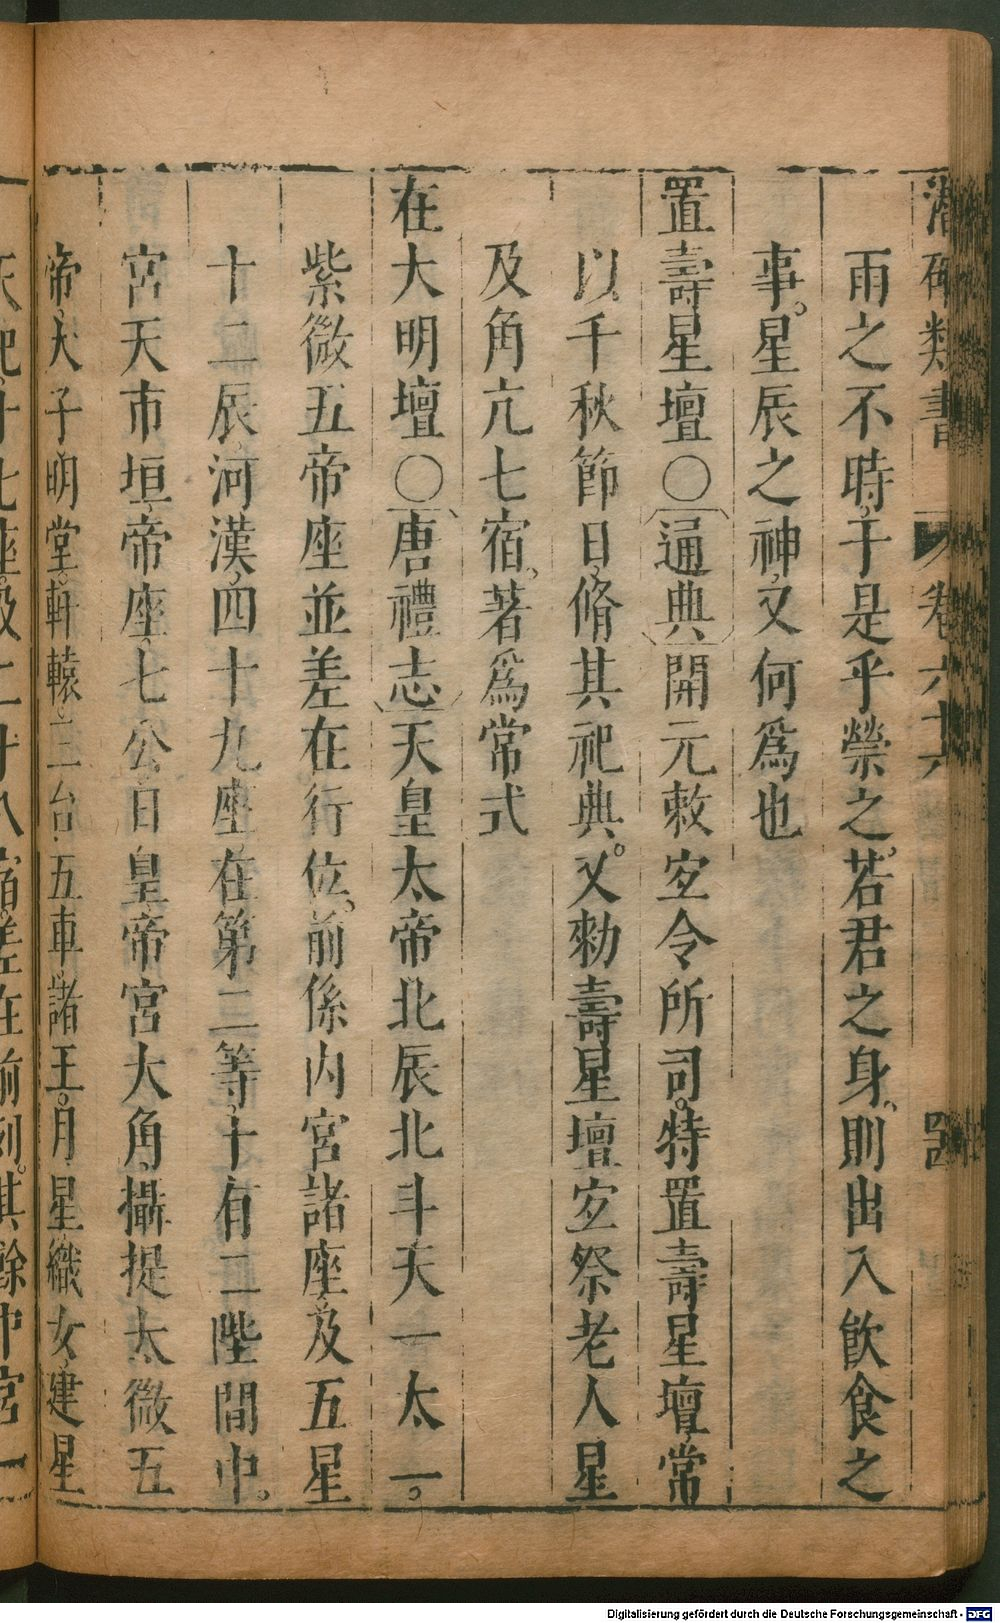 潛確類書 卷六十六 四
雨之不時于是乎禜之若君之身則出入飲食之
事星辰之神又何爲也
置壽星壇〇通典開元敕宐令所司特置壽星壇常
以千秋節日脩其祀典又勑壽星壇宐祭老人星
及角亢七宿著爲常式
在大明壇〇唐禮志天皇太帝北辰北斗天一太一
紫微五帝座並差在行位前係内宮諸座及五星
十二辰河漢四十九座在第二等十有二陛間中
宮天市垣帝座七公日皇帝宮大角攝提太微五
帝太子明堂軒轅三台五車諸王月星織女建星